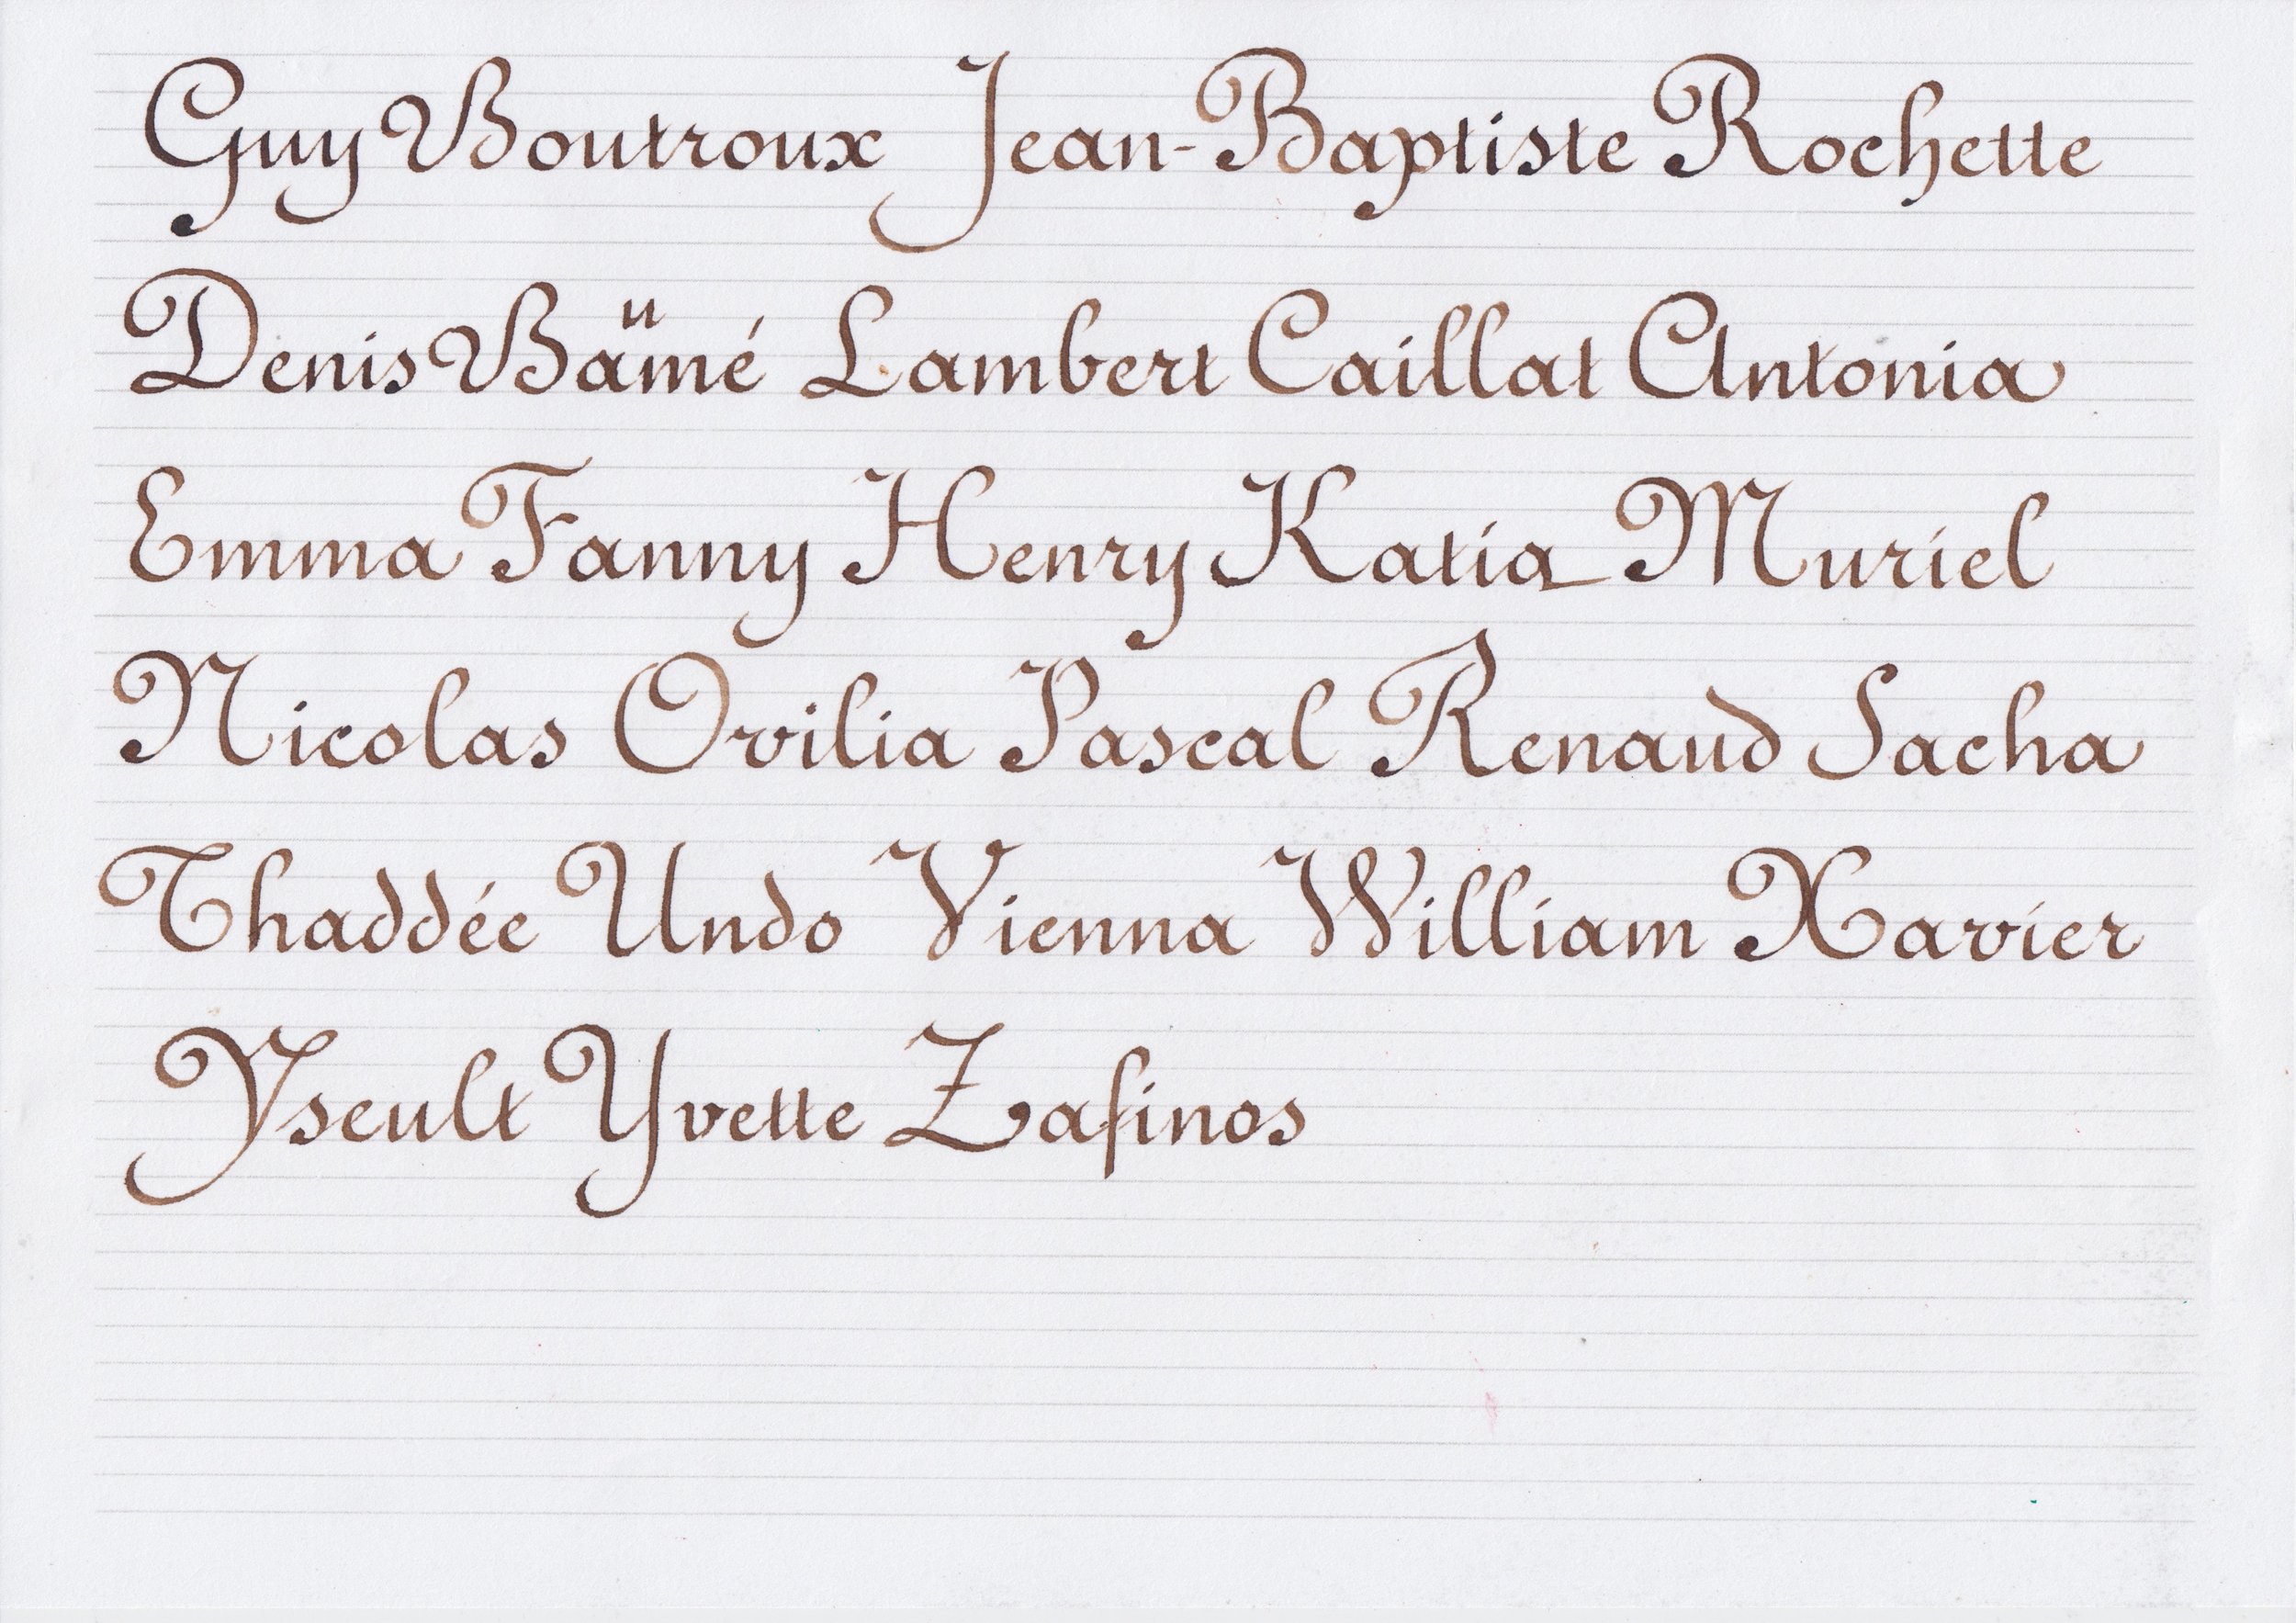 Guy Boutroux Jean-Baptiste Rochette
Denis Bämé Lambert Caillat Antonia
Emma Fanny Henry Katia Muriel
Nicolas Ovilia Pascal Renaud Sacha
Thaddée Undo Vienna William Xavier
Yseult Yvette Zafinos